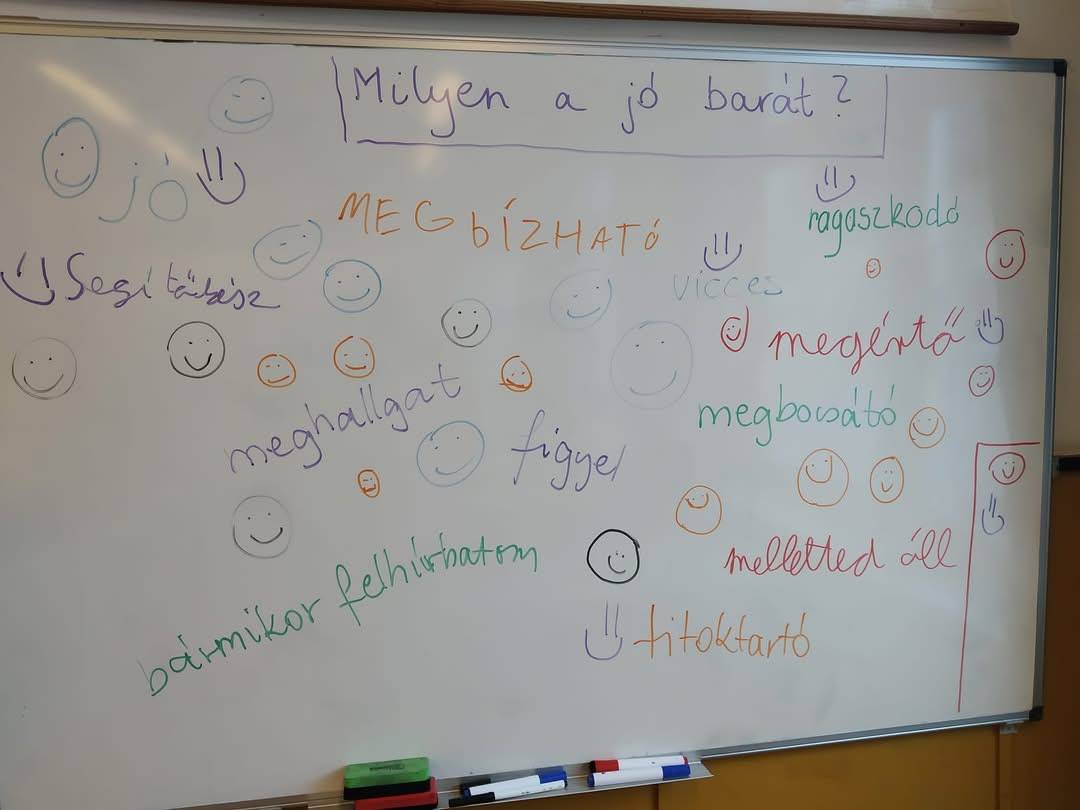 Milyen a jó barát?
jó
MEGbÍZHATÓ
ragaszkodó
vicces
megértő
meghallgat
megbocsátó
figyel
melletted áll
bármikor felhívhatom
titoktartó